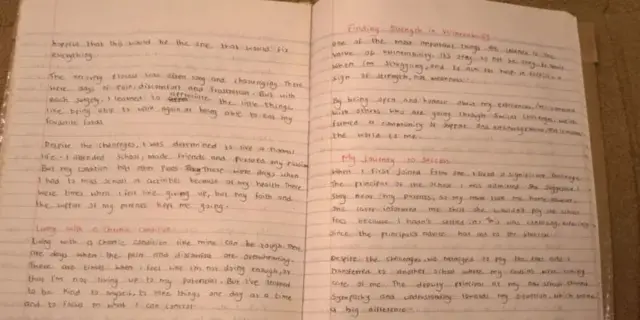 hopeful that this would be the one that would fix
everything.
The recovery process was often long and challenging. There
were days of pain, discomfort and frustration. But with
each surgery, I learned to appreciate the little things
like being able to walk again or being able to eat my
favourite foods
Despite the challenges, I was determined to live a normal
life. I attended school, made friends and pursued my passions
But my condition had other plans. There were days when
I had to miss school or activities because of my health. There
were times when I felt like giving up, but my faith and
the support of my parents kept me going.
Living with a Chronic Condition
Living with a chronic condition like mine can be tough. There
are days when the pain and discomfort are overwhelming.
There are times when I feel like I'm not doing enough, or
that I'm not living up to my potential. But I've learned
to be kind to myself, to take things one day at a time
and to focus on what I can control
Finding Strength in Vulnerability
One of the most important things I've learned is the
value of vulnerability. It's okay to not be okay, to
when I'm struggling, and to ask for help is actually a
sign of strength, not weakness.
By being open and honest about my experiences, I've connected
with others who are going through similar challenges. We've
formed a community of support and encouragement that is
the world to me.
My Journey to Success
When I first joined Form one I faced a significant challenge
The principal of the school I was admitted the
stay near my
this
fees because I hadn't
since the principal's
Despite the challenges, we managed to pay the fees and I
transferred to another school where my cousins were taking
care of me. The deputy principal at my new school showed
sympathy and understanding towards my condition which made
a big difference.